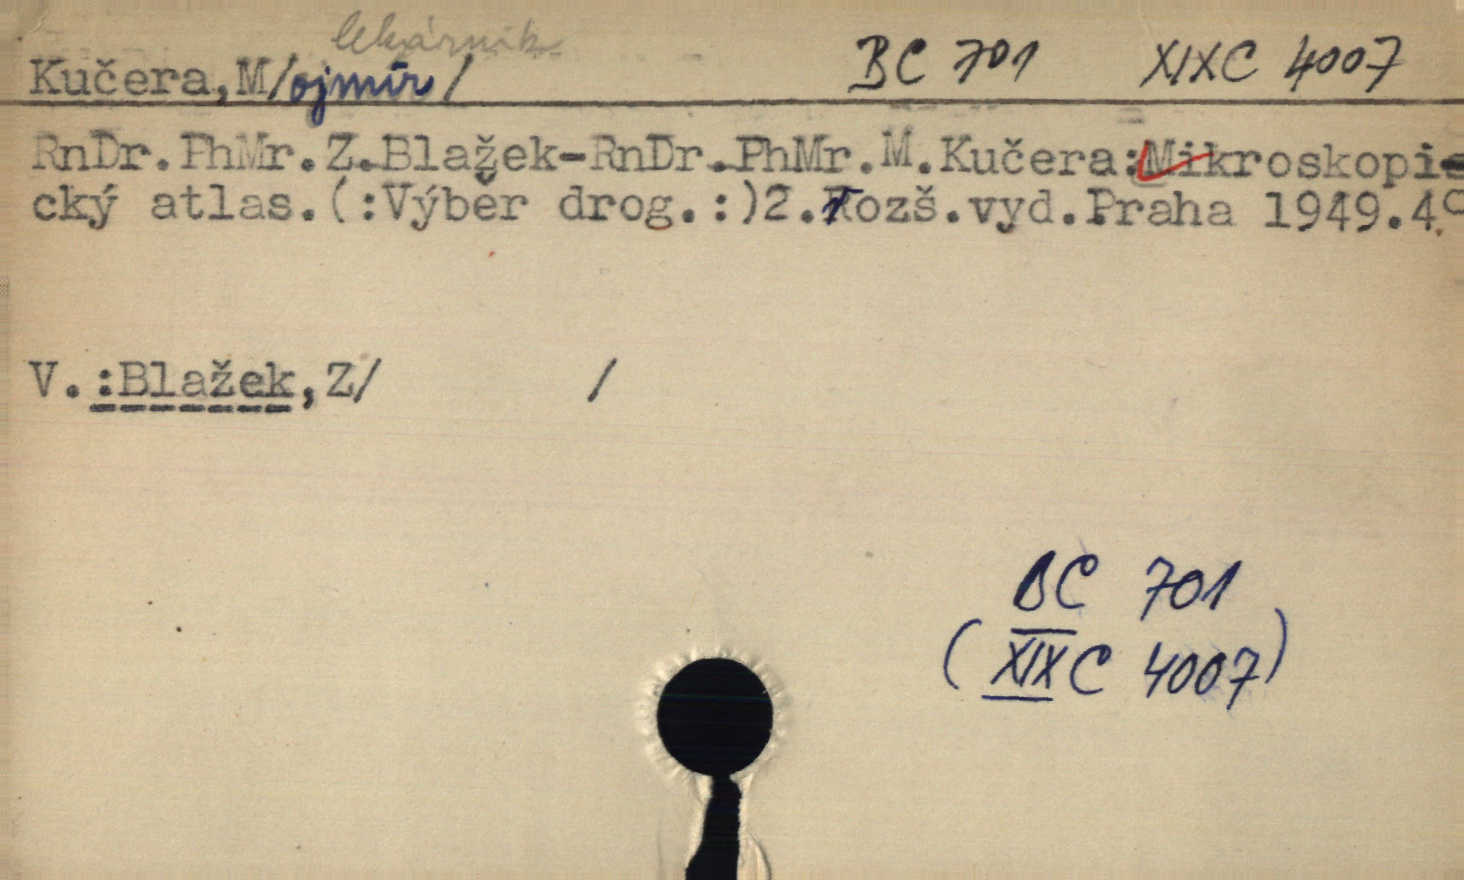 lékárník
Kučera,M/ojmír/ BC 701 XIXC 4007
RnDr.PhMr.Z.Blažek-RnDr.PhMr.M.Kučera:Mikroskopi-
cký atlas.(:Výběr drog.:)2.rozš.vyd.Praha 1949.4°
V.:Blažek,Z/ /
BC 701
(XIXC 4007)